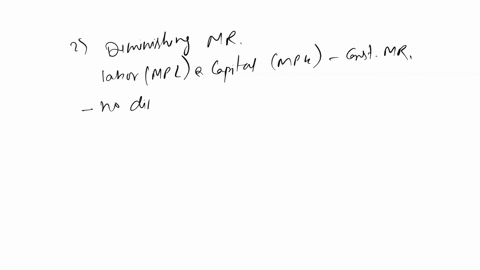 2) Diminishing MR.
labor (MPL) & Capital (MPK) - Const. MR.
- no di